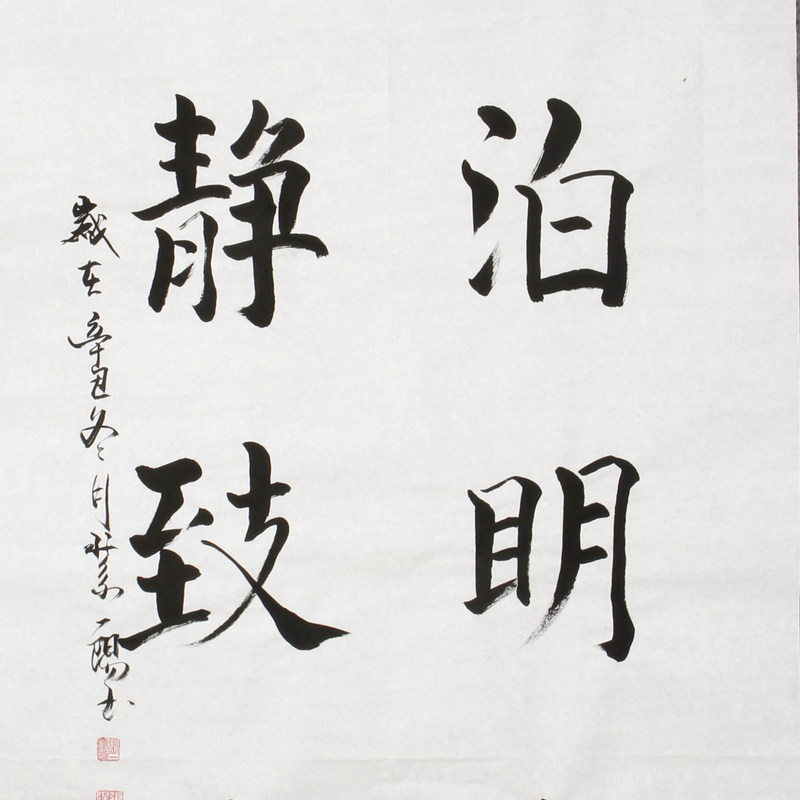 泊明
静致
岁在辛丑冬月